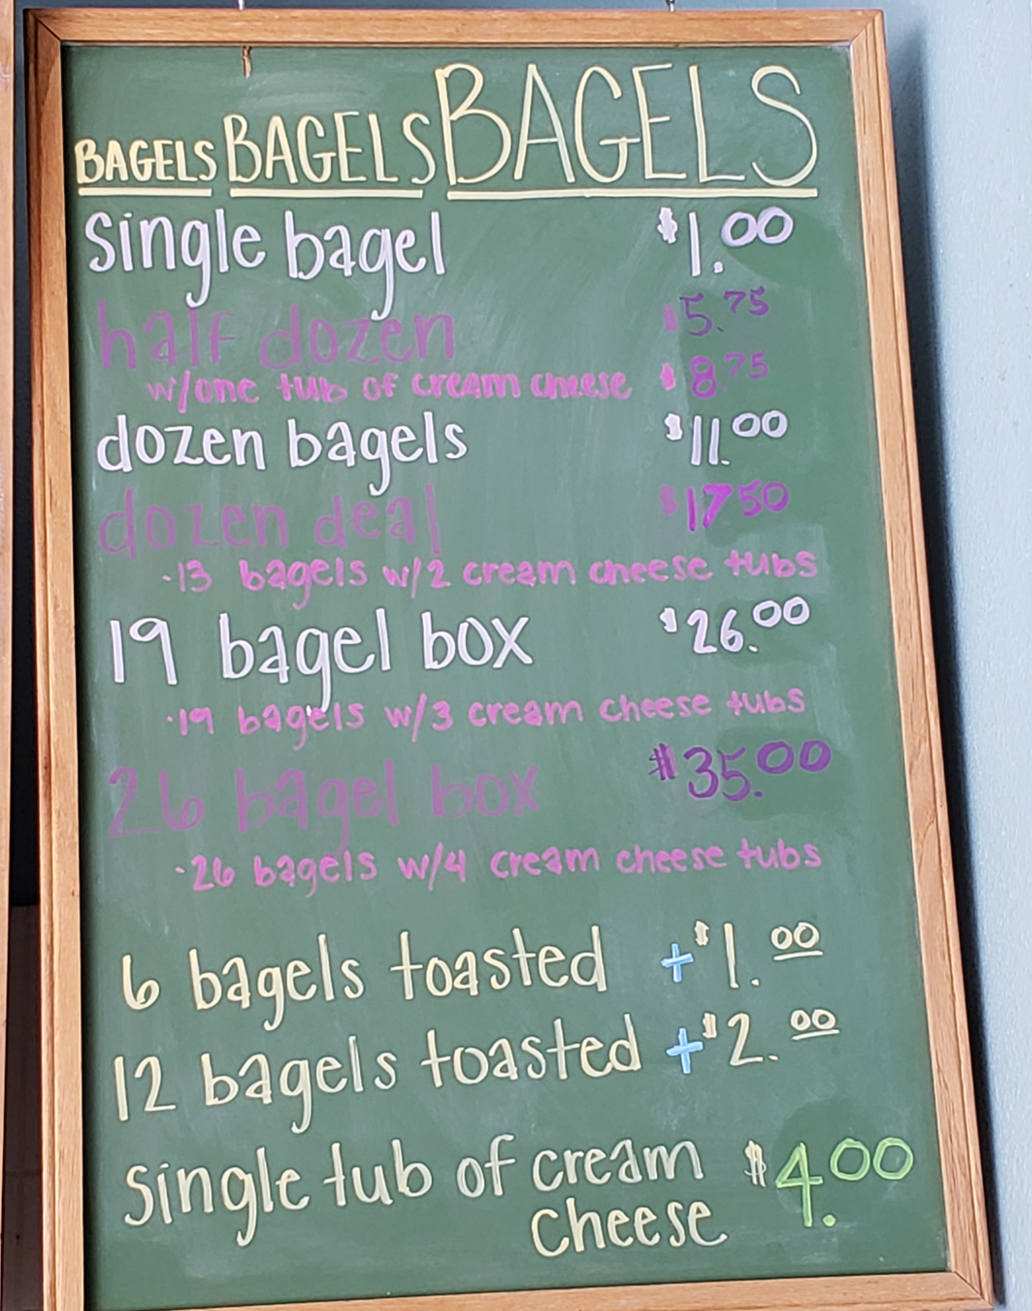 BAGELS BAGELS BAGELS
single bagel $1.00
half dozen $5.75
w/one tub of cream cheese $8.75
dozen bagels $11.00
dozen deal $17.50
·13 bagels w/2 cream cheese tubs
19 bagel box $26.00
·19 bagels w/3 cream cheese tubs
26 bagel box $35.00
·26 bagels w/4 cream cheese tubs
6 bagels toasted +$1.00
12 bagels toasted +$2.00
single tub of cream $4.00
cheese